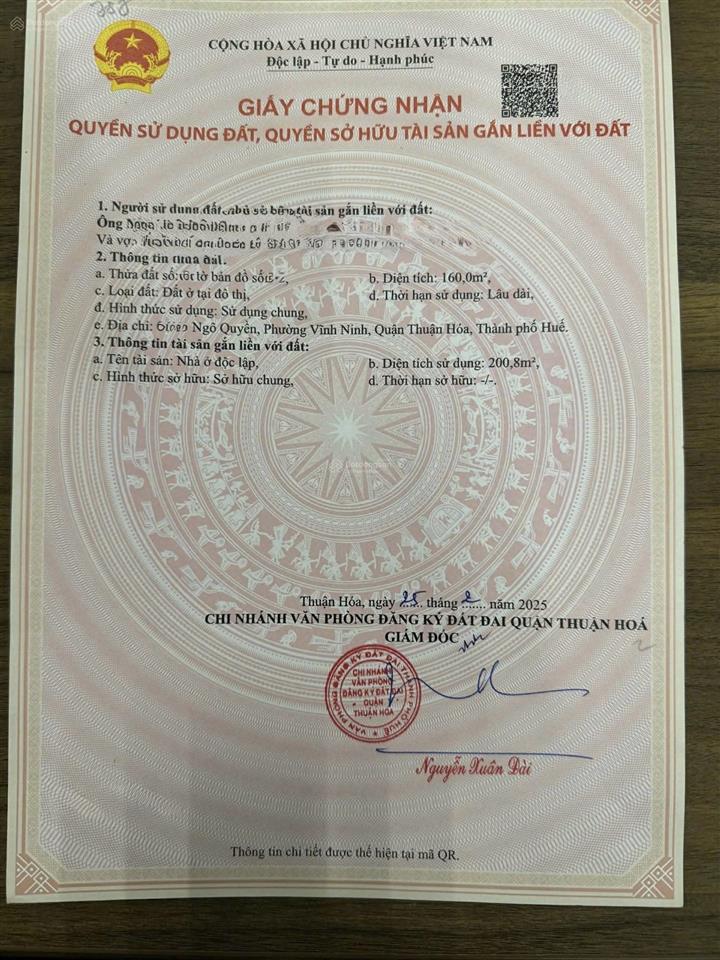 CỘNG HÒA XÃ HỘI CHỦ NGHĨA VIỆT NAM
Độc lập - Tự do - Hạnh phúc
GIẤY CHỨNG NHẬN
QUYỀN SỬ DỤNG ĐẤT, QUYỀN SỞ HỮU TÀI SẢN GẮN LIỀN VỚI ĐẤT
1. Người sử dụng đất, chủ sở hữu tài sản gắn liền với đất:
Ông
Và vợ
2. Thông tin thửa đất:
a. Thửa đất số: tờ bản đồ số:
b. Diện tích: 160,0m²,
c. Loại đất: Đất ở tại đô thị,
d. Thời hạn sử dụng: Lâu dài,
đ. Hình thức sử dụng: Sử dụng chung,
e. Địa chỉ: Ngô Quyền, Phường Vĩnh Ninh, Quận Thuận Hóa, Thành phố Huế.
3. Thông tin tài sản gắn liền với đất:
a. Tên tài sản: Nhà ở độc lập,
b. Diện tích sử dụng: 200,8m²,
c. Hình thức sở hữu: Sở hữu chung,
d. Thời hạn sở hữu: -/-.
Thuận Hóa, ngày 25 tháng 2 năm 2025
CHI NHÁNH VĂN PHÒNG ĐĂNG KÝ ĐẤT ĐAI QUẬN THUẬN HOÁ
GIÁM ĐỐC
VĂN PHÒNG ĐĂNG KÝ ĐẤT ĐAI THÀNH PHỐ HUẾ
CHI NHÁNH
VĂN PHÒNG
ĐĂNG KÝ ĐẤT ĐAI
QUẬN
THUẬN HÓA
Nguyễn Xuân Đài
Thông tin chi tiết được thể hiện tại mã QR.